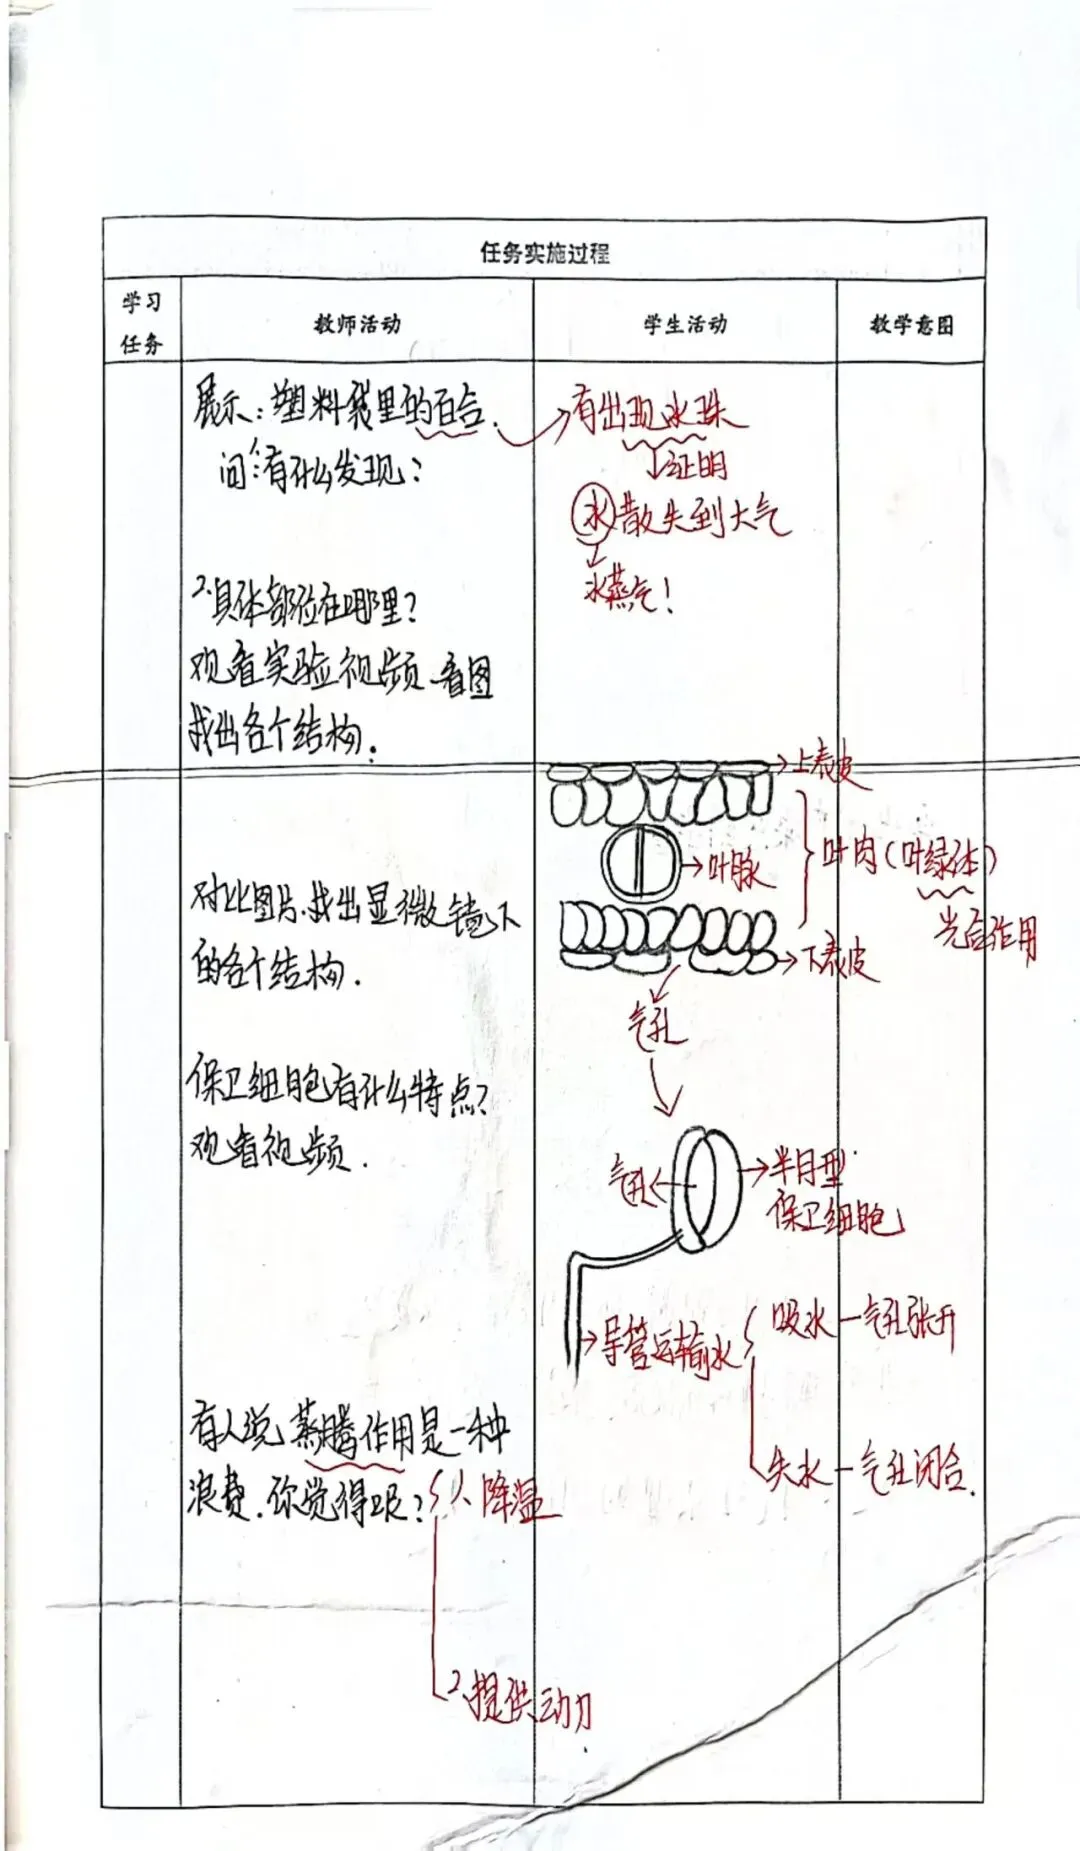 任务实施过程
学习
任务
教师活动
学生活动
教学意图
展示:塑料袋里的百合.
问1:有什么发现?
有出现水珠
证明
水散失到大气
水蒸气!
2.具体部位在哪里?
观看实验视频.看图
找出各个结构.
上表皮
叶脉
叶肉(叶绿体)
光合作用
下表皮
气孔
对比图片.找出显微镜下
的各个结构.
保卫细胞有什么特点?
观看视频.
气孔
半月型
保卫细胞
导管运输水
吸水—气孔张开
失水—气孔闭合.
有人说蒸腾作用是一种
浪费.你觉得呢?
1、降温
2、提供动力